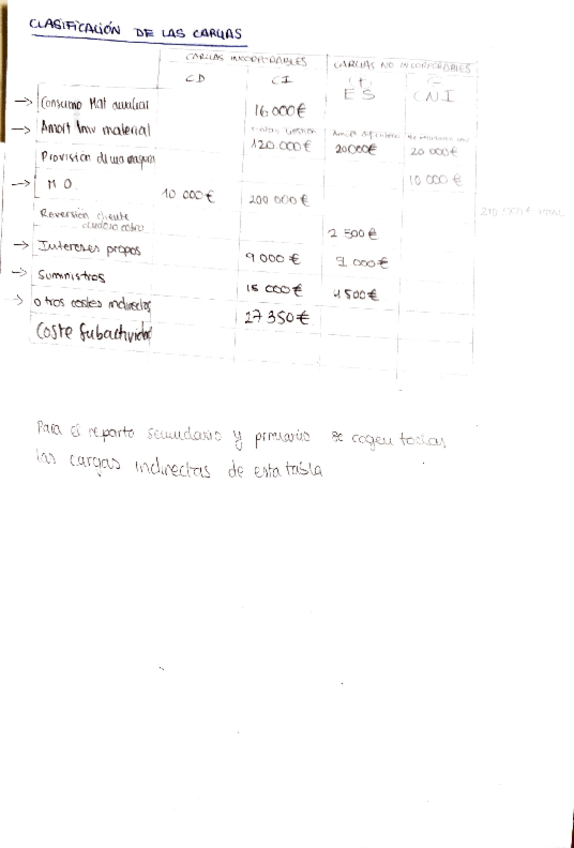 CLASIFICACIÓN DE LAS CARGAS
CARGAS INCORPORABLES CARGAS NO INCORPORABLES
CD CI (+) ES (-) CNI
→ Consumo Mat auxiliar 16 000€
→ Amort Inv material 120 000€ 20000€ 20 000€
Provisión 10 000 €
→ M O 10 000€ 200 000€
210 000€ TOTAL
Reversión cliente dudoso cobro 2 500€
→ Intereses propios 9 000€ 000€
→ Suministros 15 000€ 4500€
→ Otros costes indirectos 27 350€
Coste Subactividad
Para el reparto secundario y primario se cogen todas
las cargas indirectas de esta tabla